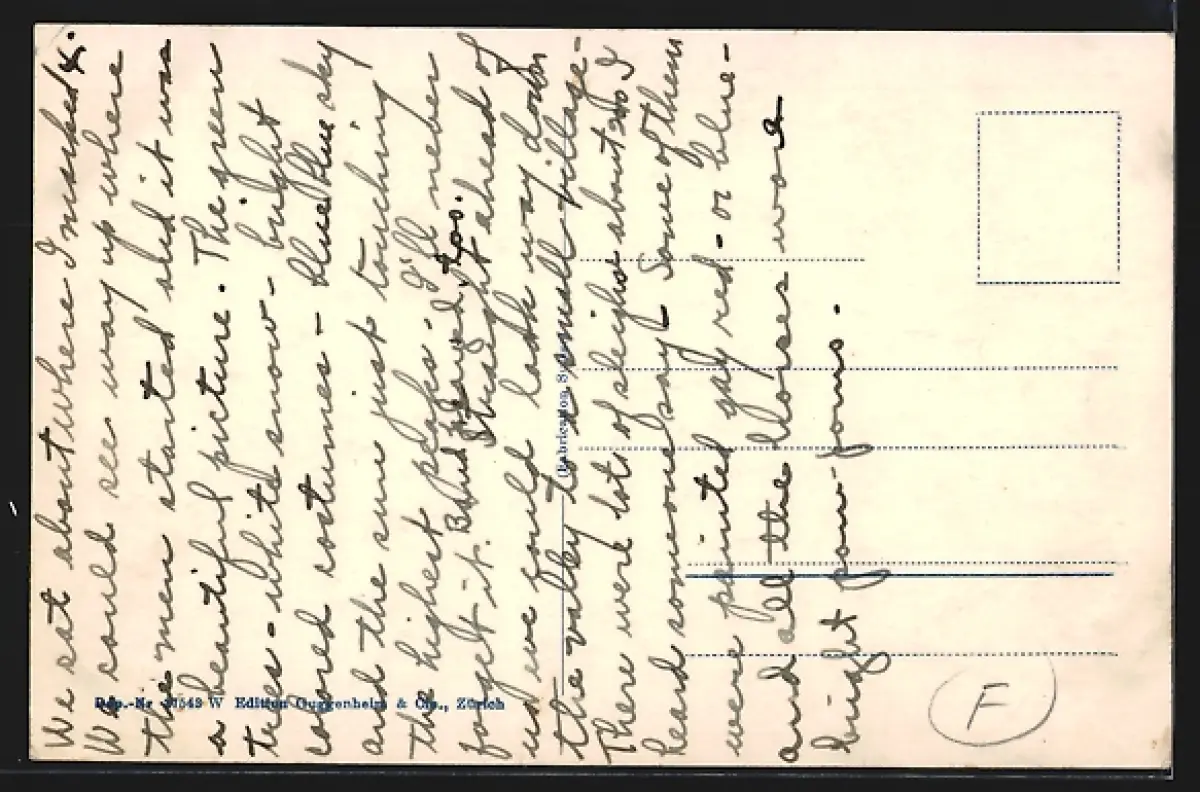 We sat about where I marked X.
We could see way up where
the men started and it was
a beautiful picture. The green
trees - white snow - bright
colored costumes - blue blue sky
and the sun just touching
the highest peaks. I'll never
forget it. Band played, too.
Straight ahead of
us we could look way down
the valley to a small village -
There were lots of sleighs about I
heard someone say - Some of them
were painted gay red - or blue -
and all the horses wore
bright pom-poms.
Dep.-Nr W Edition Guggenheim & Cie., Zürich
Fabrication
F